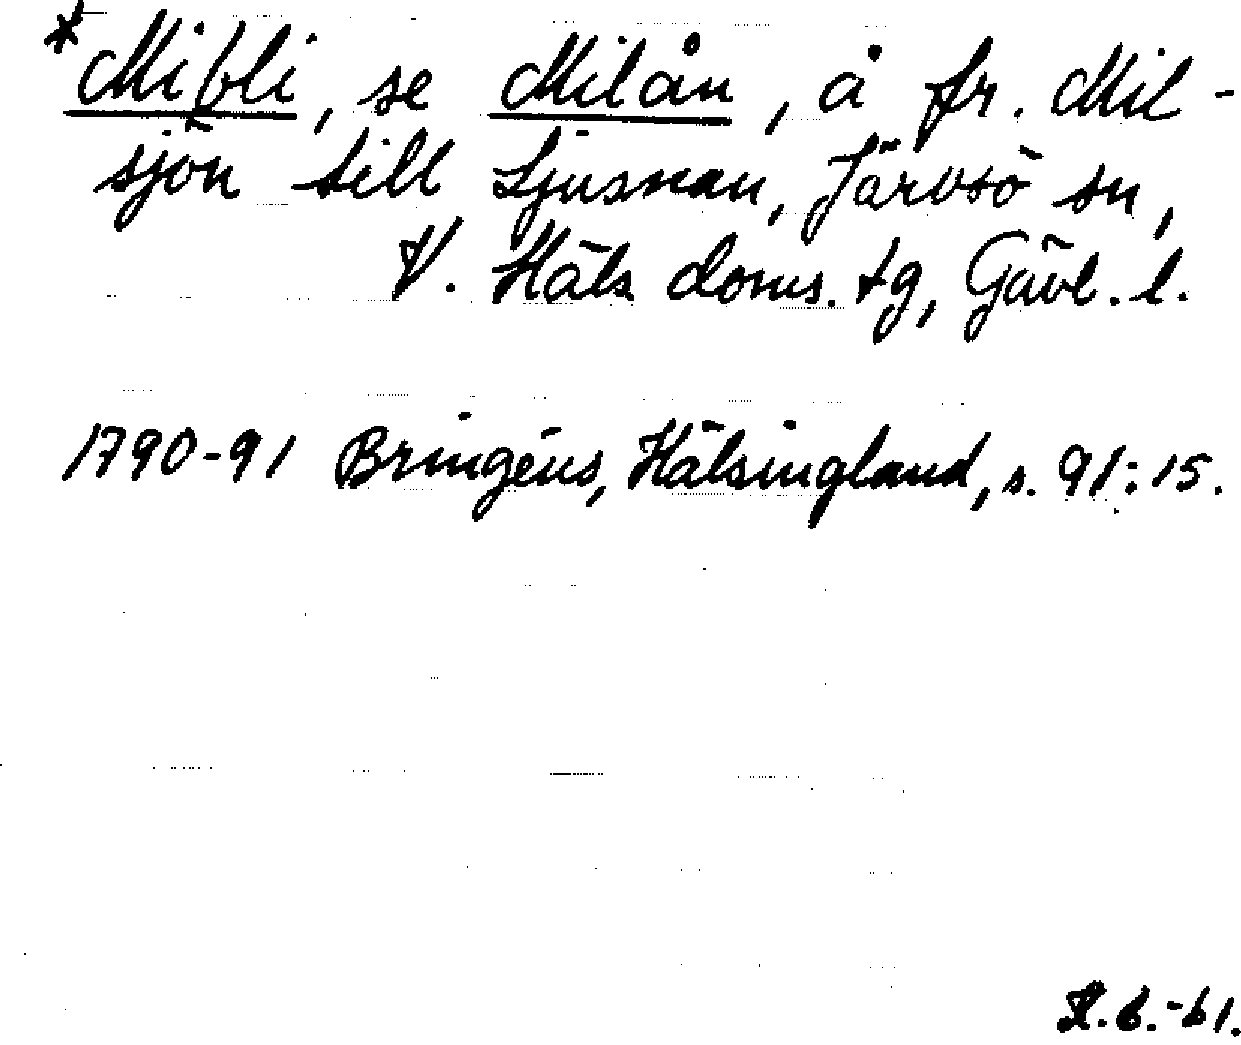 *Mibli, se Milån, å fr. Mil-
sjön till Ljusnan, Järvsö sn,
V. Häls doms. tg, Gävl. l.
1790-91 Bringéus, Hälsingland, s. 91:15.
R.b.-61.